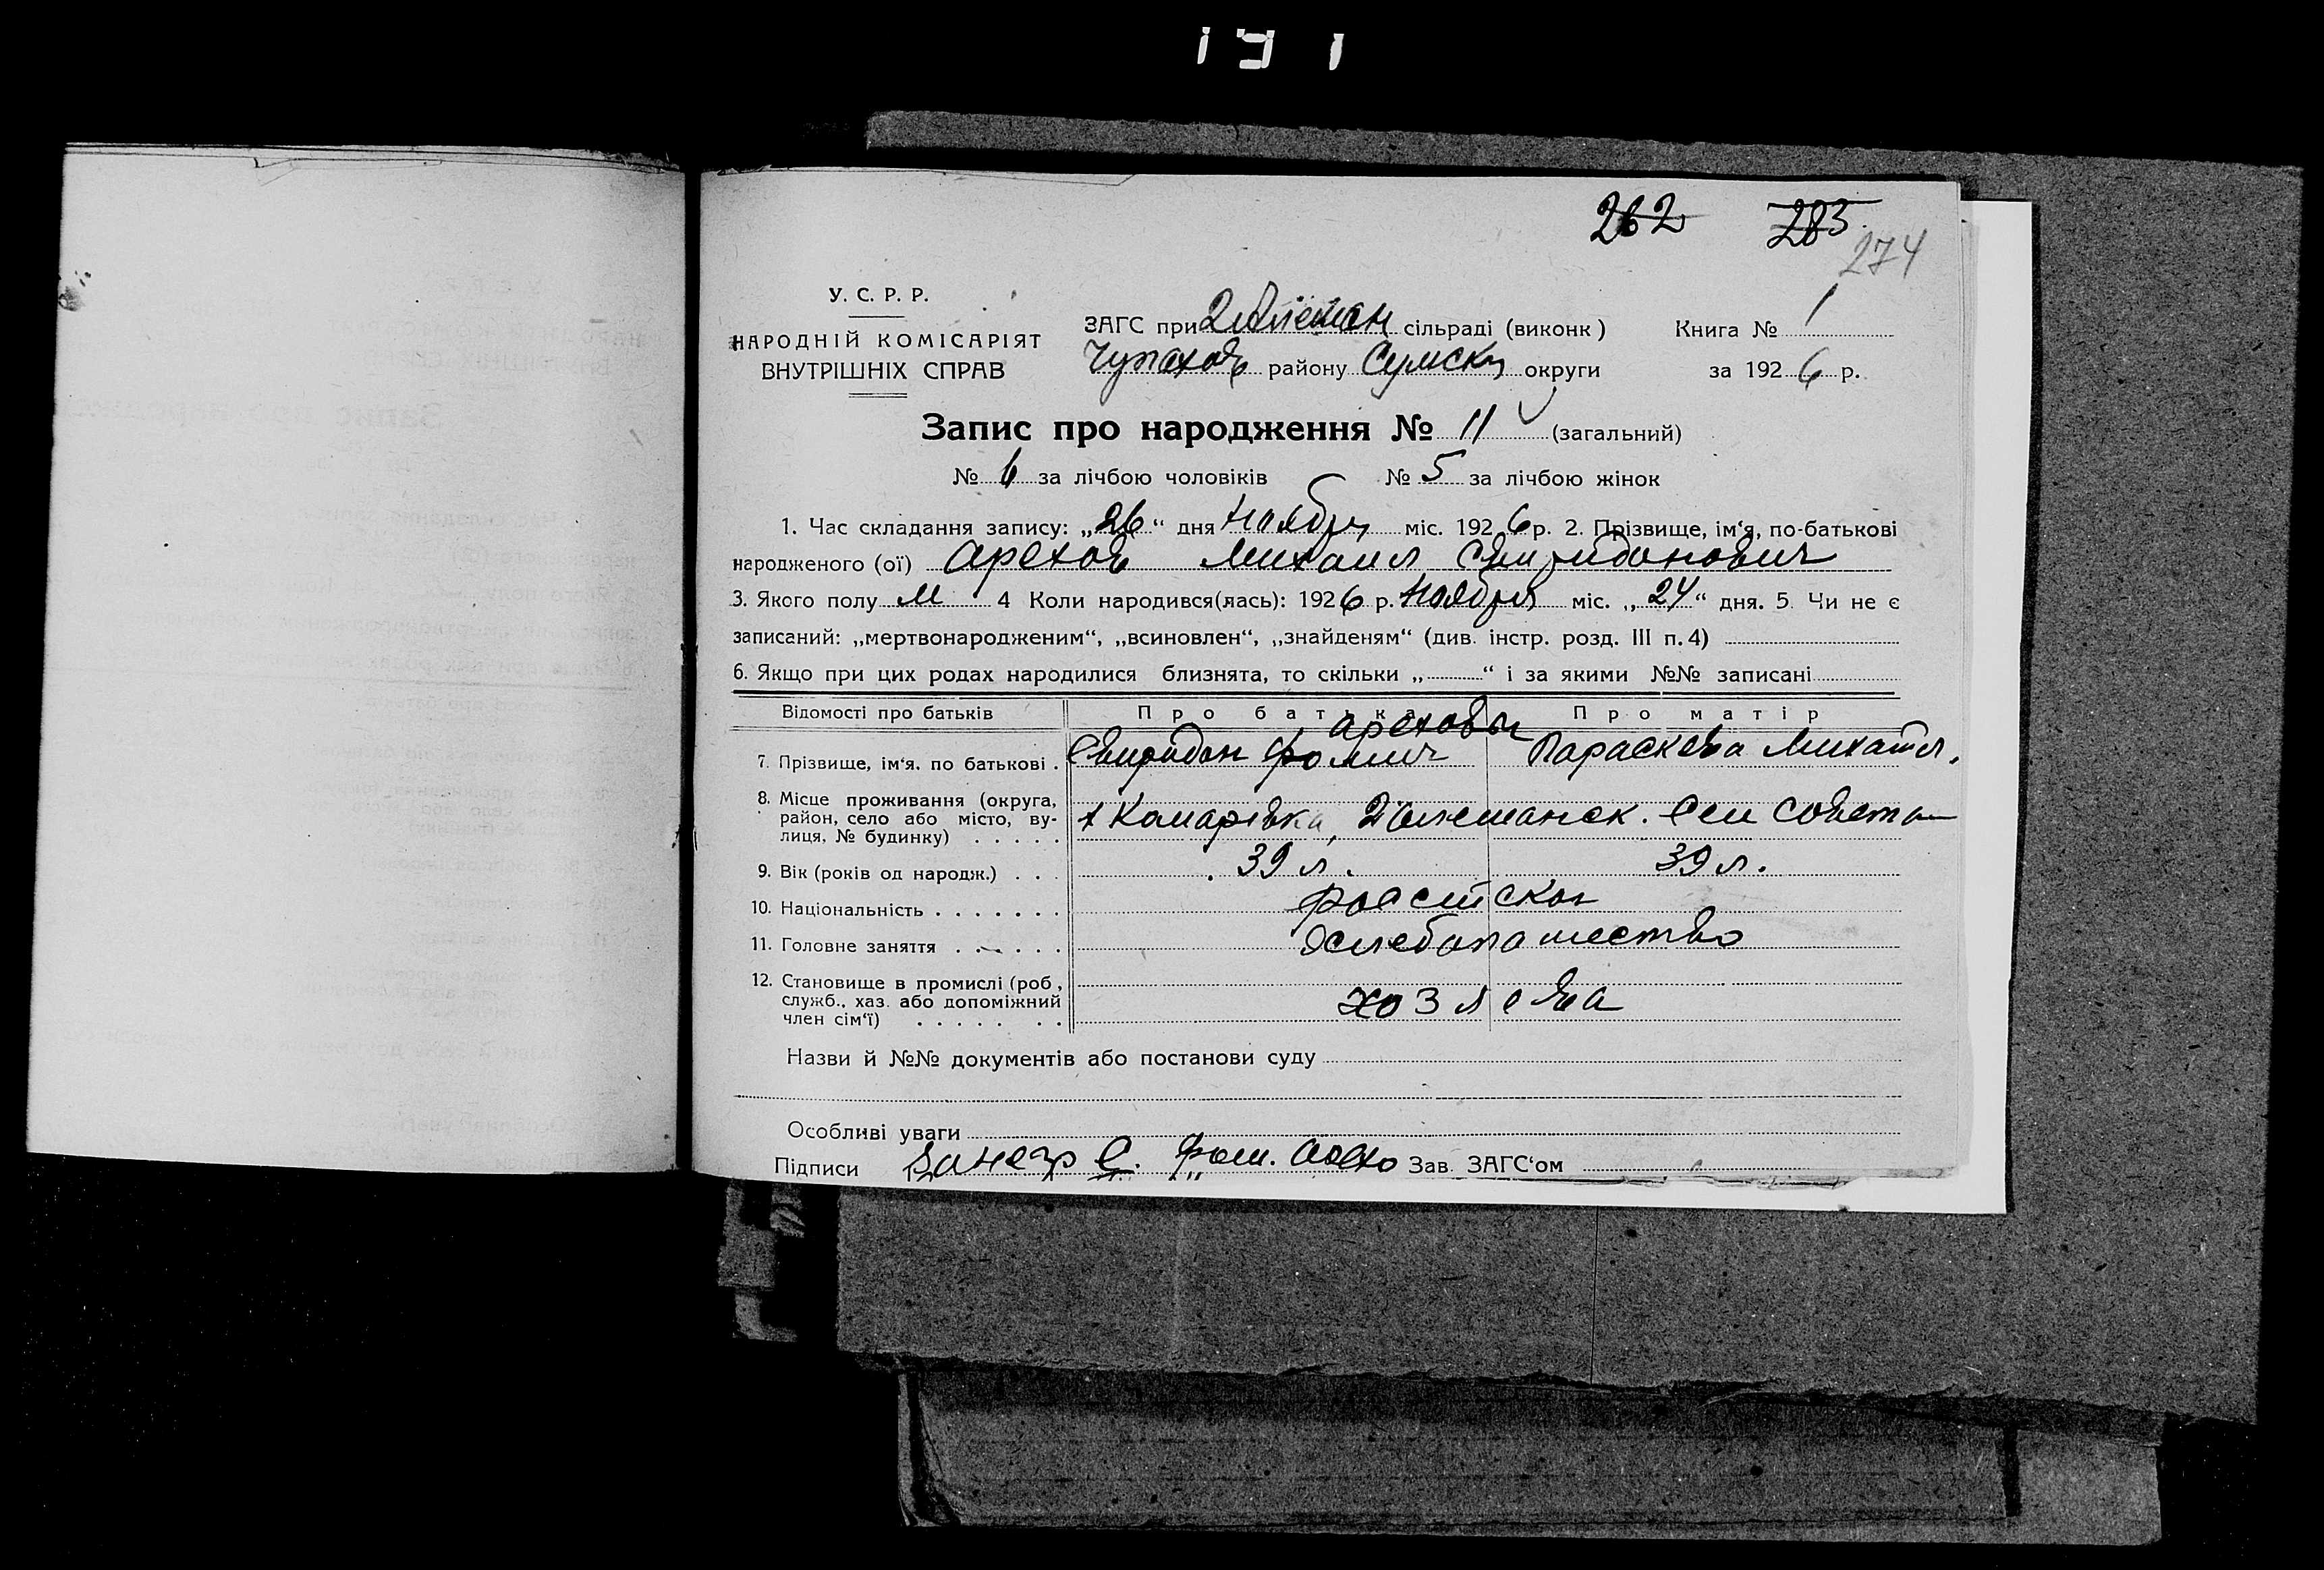 262 283
274
У. С. Р. Р.
НАРОДНІЙ КОМІСАРІЯТ
ВНУТРІШНІХ СПРАВ
ЗАГС при сільраді (виконк) Книга № 1
Чупахов району Сумск округи за 1926 р.
Запис про народження № 11 (загальний)
№ 6 за лічбою чоловіків № 5 за лічбою жінок
1. Час складання запису: „26“ дня Ноября міс. 1926 р. 2. Прізвище, ім‘я, по-батькові
народженого (ої) Арехов Михаил Свиридонович
3. Якого полу М 4 Коли народився(лась): 1926 р. Ноября міс. „24“ дня. 5. Чи не є
записаний: „мертвонародженим“, „всиновлен“, „знайденям“ (див. інстр. розд. III п. 4)
6. Якщо при цих родах народилися близнята, то скільки „ “ і за якими №№ записані
Відомості про батьків Про батька Про матір
Ареховы
7. Прізвище, ім‘я. по батькові . Свиридон Фомич Параскева Михайл.
8. Місце проживання (округа, район, село або місто, вулиця, № будинку) . . . . . х Комаривка, сел совета
9. Вік (років од народж.) . . . 39 л. 39 л.
10. Національність . . . . . . . российская
11. Головне заняття . . . . . . хлебопашество
12. Становище в промислі (роб, служб., хаз. або допоміжний член сім‘ї) . . . . . . . хозяева
Назви й №№ документів або постанови суду
Особливі уваги
Підписи С. Фом. Зав. ЗАГС‘ом